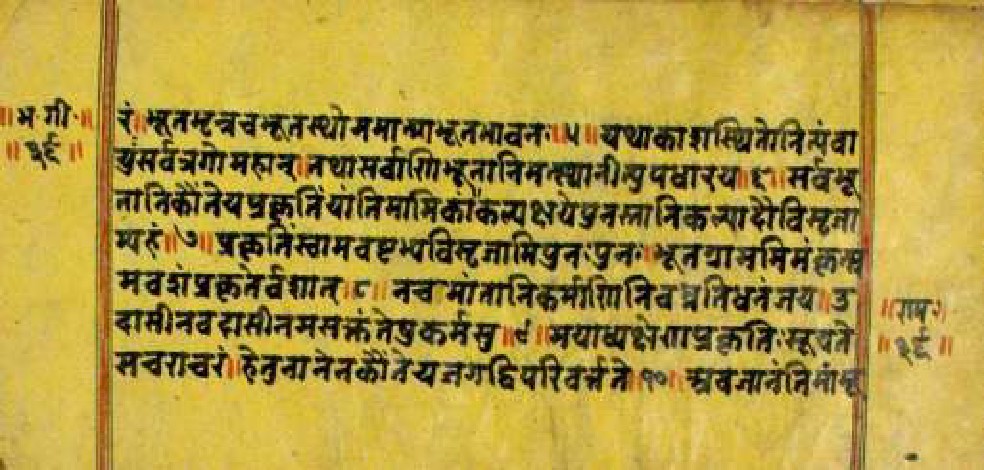 ॥भ·गी·॥
॥३६॥
रं॥भूतभृन्नचभूतस्थोममात्माभूतभावनः॥५॥यथाकाशस्थितोनित्यंवा
युःसर्वत्रगोमहान्॥तथासर्वाणिभूतानिमत्स्थानीत्युपधारय॥६॥सर्वभू
तानिकौंतेयप्रकृतिंयांतिमामिकां॥कल्पक्षयेपुनस्तानिकल्पादौविसृजा
म्यहं॥७॥प्रकृतिंस्वामवष्टभ्यविसृजामिपुनःपुनः॥भूतग्राममिमंकृत्स्न
मवशंप्रकृतेर्वशात्॥८॥नचमांतानिकर्माणिनिबध्नंतिधनंजय॥उ
दासीनवदासीनमसक्तंतेषुकर्मसु॥९॥मयाध्यक्षेणप्रकृतिःसूयते
सचराचरं॥हेतुनानेनकौंतेयजगद्विपरिवर्त्तते॥१०॥अवजानंतिमांमू
॥राम॥
॥३६॥